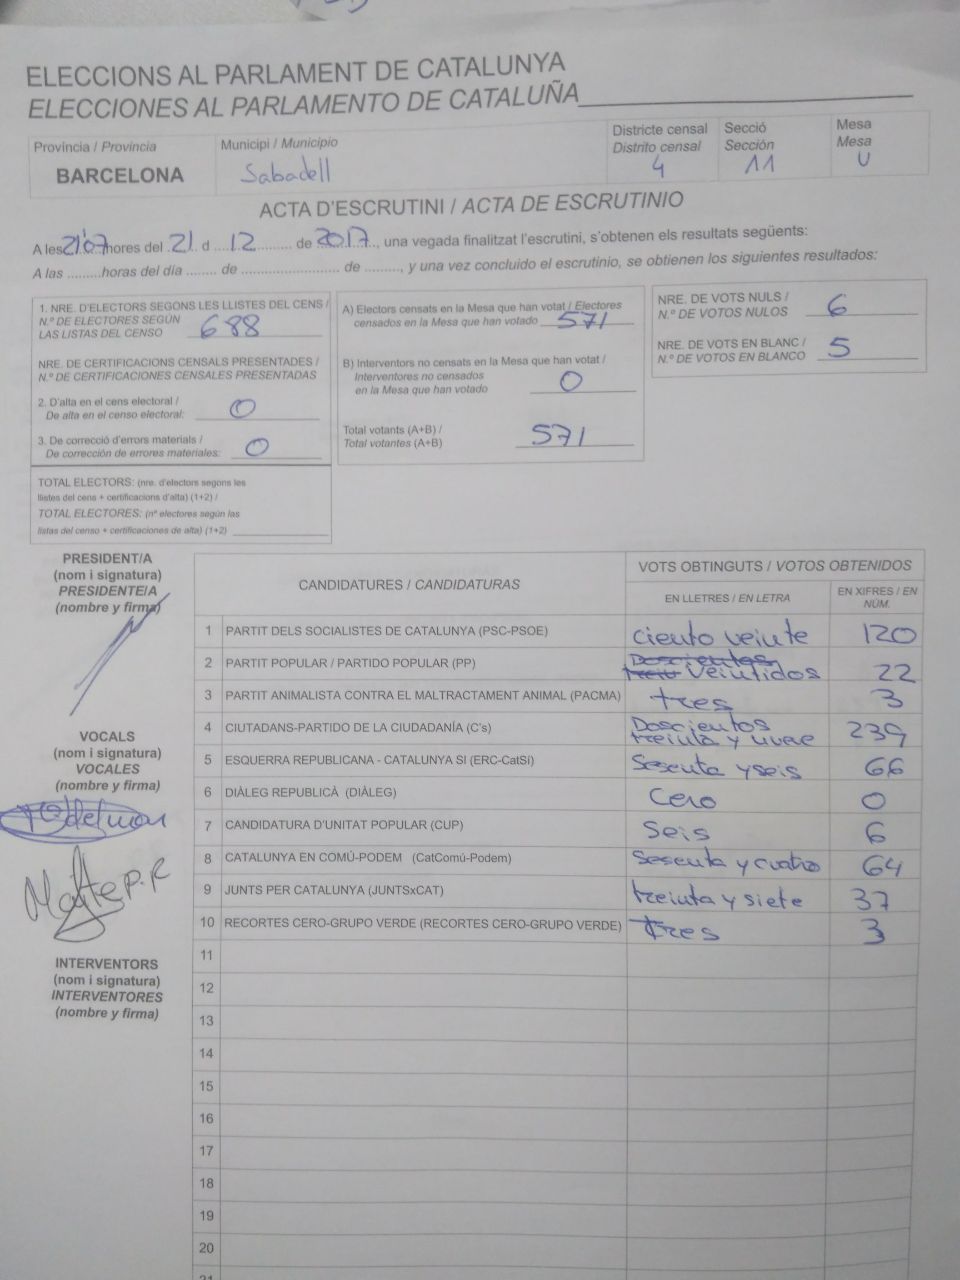 ELECCIONS AL PARLAMENT DE CATALUNYA
ELECCIONES AL PARLAMENTO DE CATALUÑA
Província / Provincia
BARCELONA
Municipi / Municipio
Sabadell
Districte censal
Distrito censal
4
Secció
Sección
11
Mesa
Mesa
U
ACTA D'ESCRUTINI / ACTA DE ESCRUTINIO
A les 21'07 hores del 21 d 12 de 2017, una vegada finalitzat l'escrutini, s'obtenen els resultats següents:
A las .........horas del día ........ de .......................... de ........., y una vez concluido el escrutinio, se obtienen los siguientes resultados:
1. NRE. D'ELECTORS SEGONS LES LLISTES DEL CENS /
N.º DE ELECTORES SEGÚN
LAS LISTAS DEL CENSO 688
NRE. DE CERTIFICACIONS CENSALS PRESENTADES /
N.º DE CERTIFICACIONES CENSALES PRESENTADAS
2. D'alta en el cens electoral /
De alta en el censo electoral: 0
3. De correcció d'errors materials /
De corrección de errores materiales: 0
TOTAL ELECTORS: (nre. d'electors segons les
llistes del cens + certificacions d'alta) (1+2) /
TOTAL ELECTORES: (nº electores según las
listas del censo + certificaciones de alta) (1+2)
A) Electors censats en la Mesa que han votat / Electores
censados en la Mesa que han votado 571
B) Interventors no censats en la Mesa que han votat /
Interventores no censados
en la Mesa que han votado 0
Total votants (A+B) /
Total votantes (A+B) 571
NRE. DE VOTS NULS /
N.º DE VOTOS NULOS 6
NRE. DE VOTS EN BLANC /
N.º DE VOTOS EN BLANCO 5
PRESIDENT/A
(nom i signatura)
PRESIDENTE/A
(nombre y firma)
VOCALS
(nom i signatura)
VOCALES
(nombre y firma)
INTERVENTORS
(nom i signatura)
INTERVENTORES
(nombre y firma)
CANDIDATURES / CANDIDATURAS
VOTS OBTINGUTS / VOTOS OBTENIDOS
EN LLETRES / EN LETRA
EN XIFRES / EN
NÚM.
1 PARTIT DELS SOCIALISTES DE CATALUNYA (PSC-PSOE) ciento veinte 120
2 PARTIT POPULAR / PARTIDO POPULAR (PP) Veintidos 22
3 PARTIT ANIMALISTA CONTRA EL MALTRACTAMENT ANIMAL (PACMA) tres 3
4 CIUTADANS-PARTIDO DE LA CIUDADANÍA (C's) Doscientos treinta y nueve 239
5 ESQUERRA REPUBLICANA - CATALUNYA SI (ERC-CatSí) Sesenta y seis 66
6 DIÀLEG REPUBLICÀ (DIÀLEG) Cero 0
7 CANDIDATURA D'UNITAT POPULAR (CUP) Seis 6
8 CATALUNYA EN COMÚ-PODEM (CatComú-Podem) Sesenta y cuatro 64
9 JUNTS PER CATALUNYA (JUNTSxCAT) treinta y siete 37
10 RECORTES CERO-GRUPO VERDE (RECORTES CERO-GRUPO VERDE) Tres 3
11
12
13
14
15
16
17
18
19
20
21